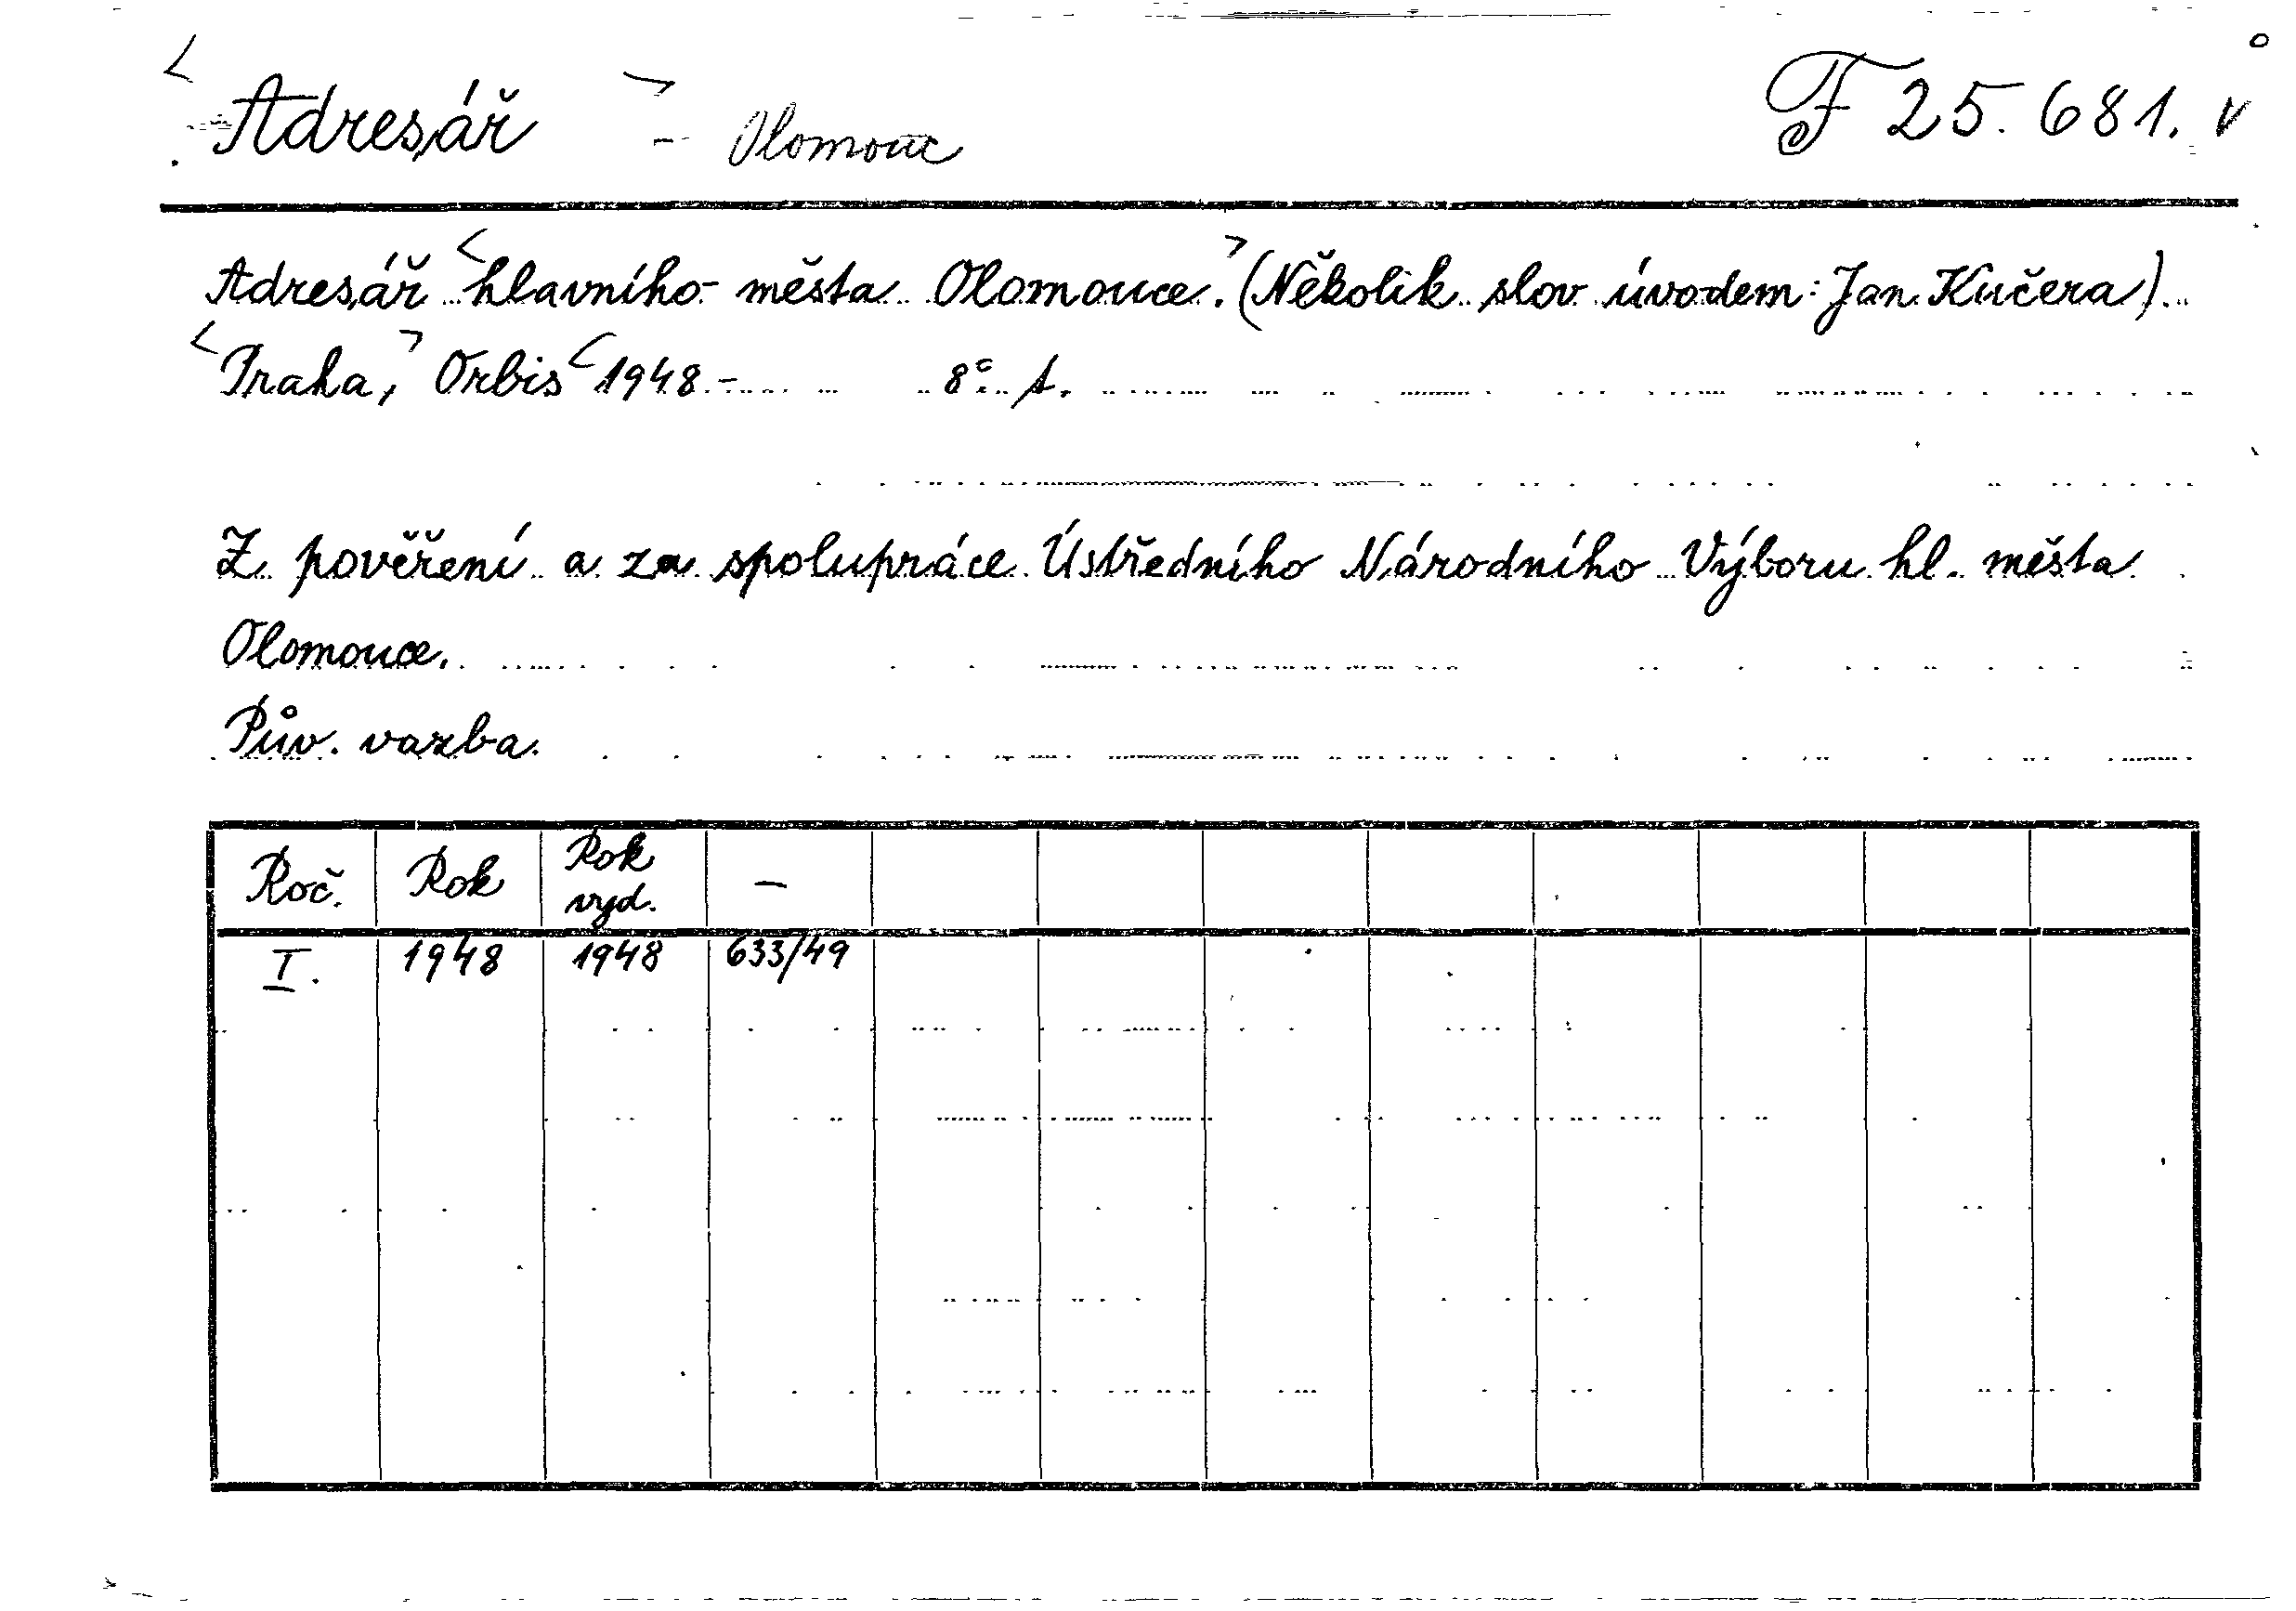 <Adresář> - Olomouc F 25.681. v
Adresář <hlavního města Olomouce.> (Několik slov úvodem: Jan Kučera).
<Praha,> Orbis <1948.- 8°.
Z pověření a za spolupráce Ústředního Národního Výboru hl. města
Olomouce.
Pův. vazba.
Roč. Rok Rok vyd. —
I. 1948 1948 633/49